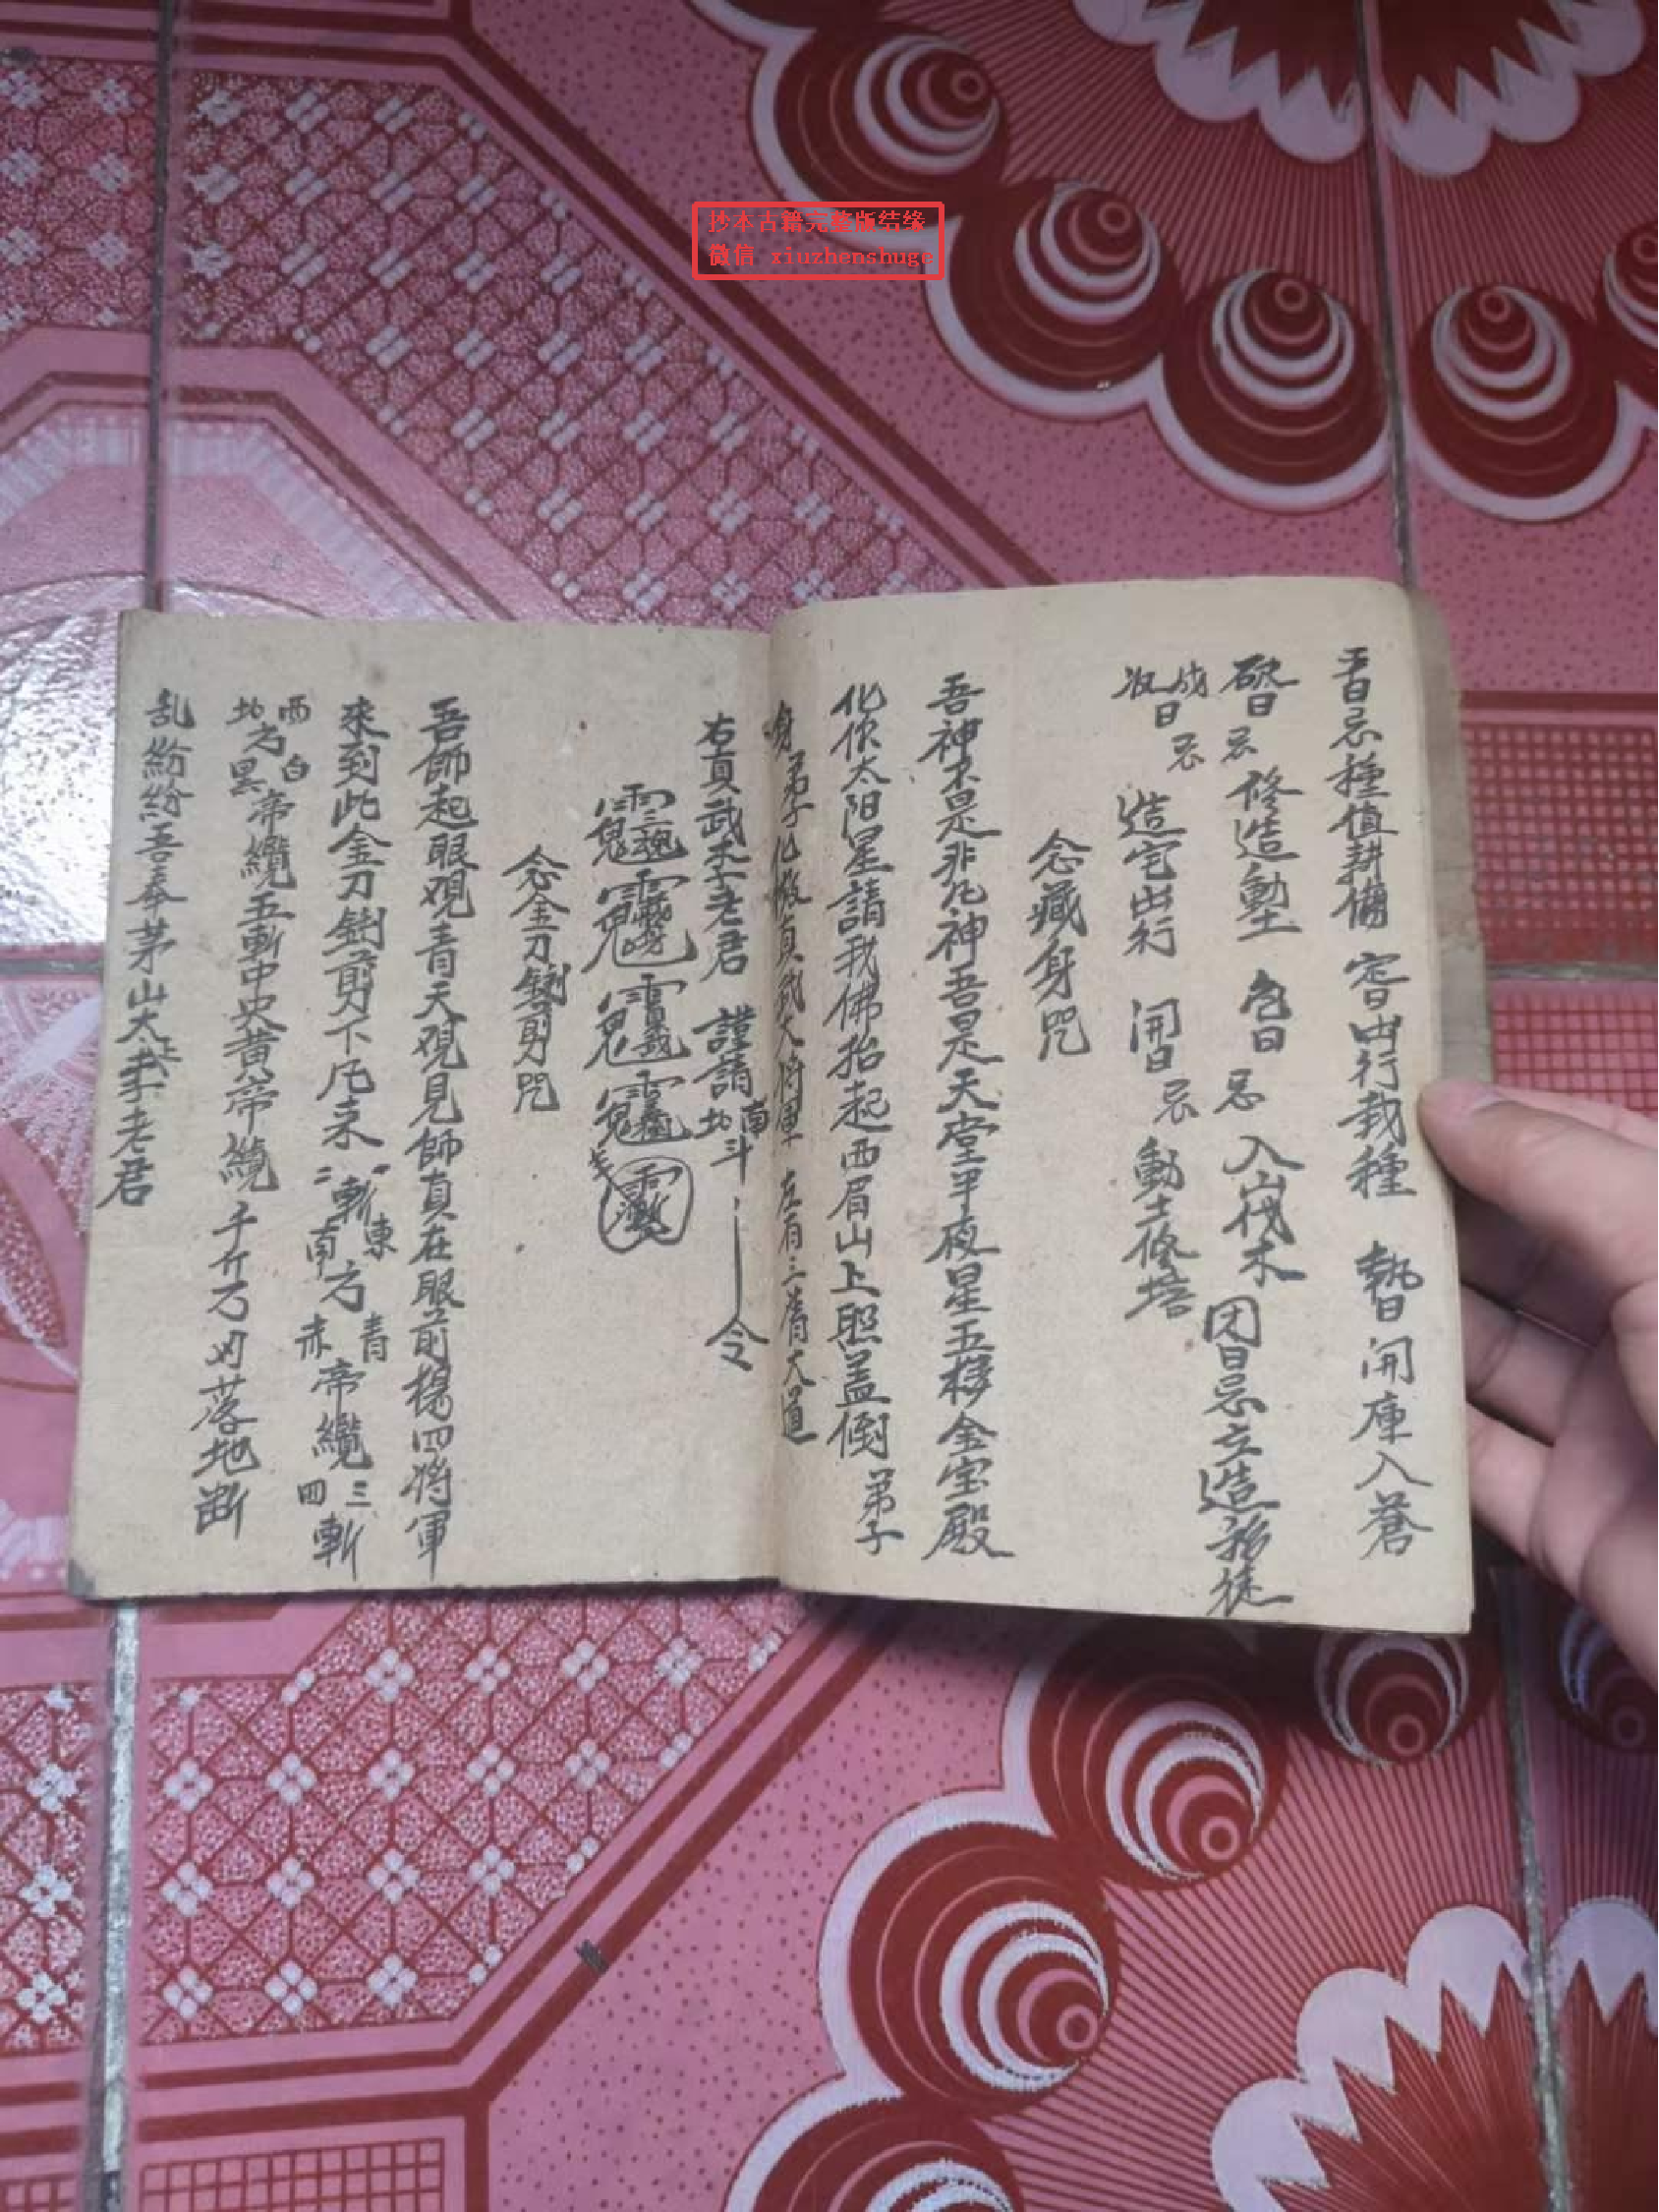 抄本古籍完整版结缘
微信 xiuzhenshuge
日忌種值耕 日出行栽種 日開庫入蒼
日忌修造動土 色日忌入山伐木 因日忌立造移徒
成收日忌造宅出行 開日忌動土修塔
念藏身咒
吾神不是非凡神吾是天堂甲夜星五移金宝殿
化作太阳星請我佛抬起西眉山上照盖倒弟子
身弟子化做真武大將軍左右三
右真武李老君 謹請南北斗 令
念金刀剪咒
吾師起眼观青天观見師真在眼前楊四將軍
來到此金刀剪下凡来一二斬東南方青赤帝纜三四斬
西北方白黑帝纜五斬中央黄帝纜千斤万 落地断
乱紛紛吾奉茅山太上李老君